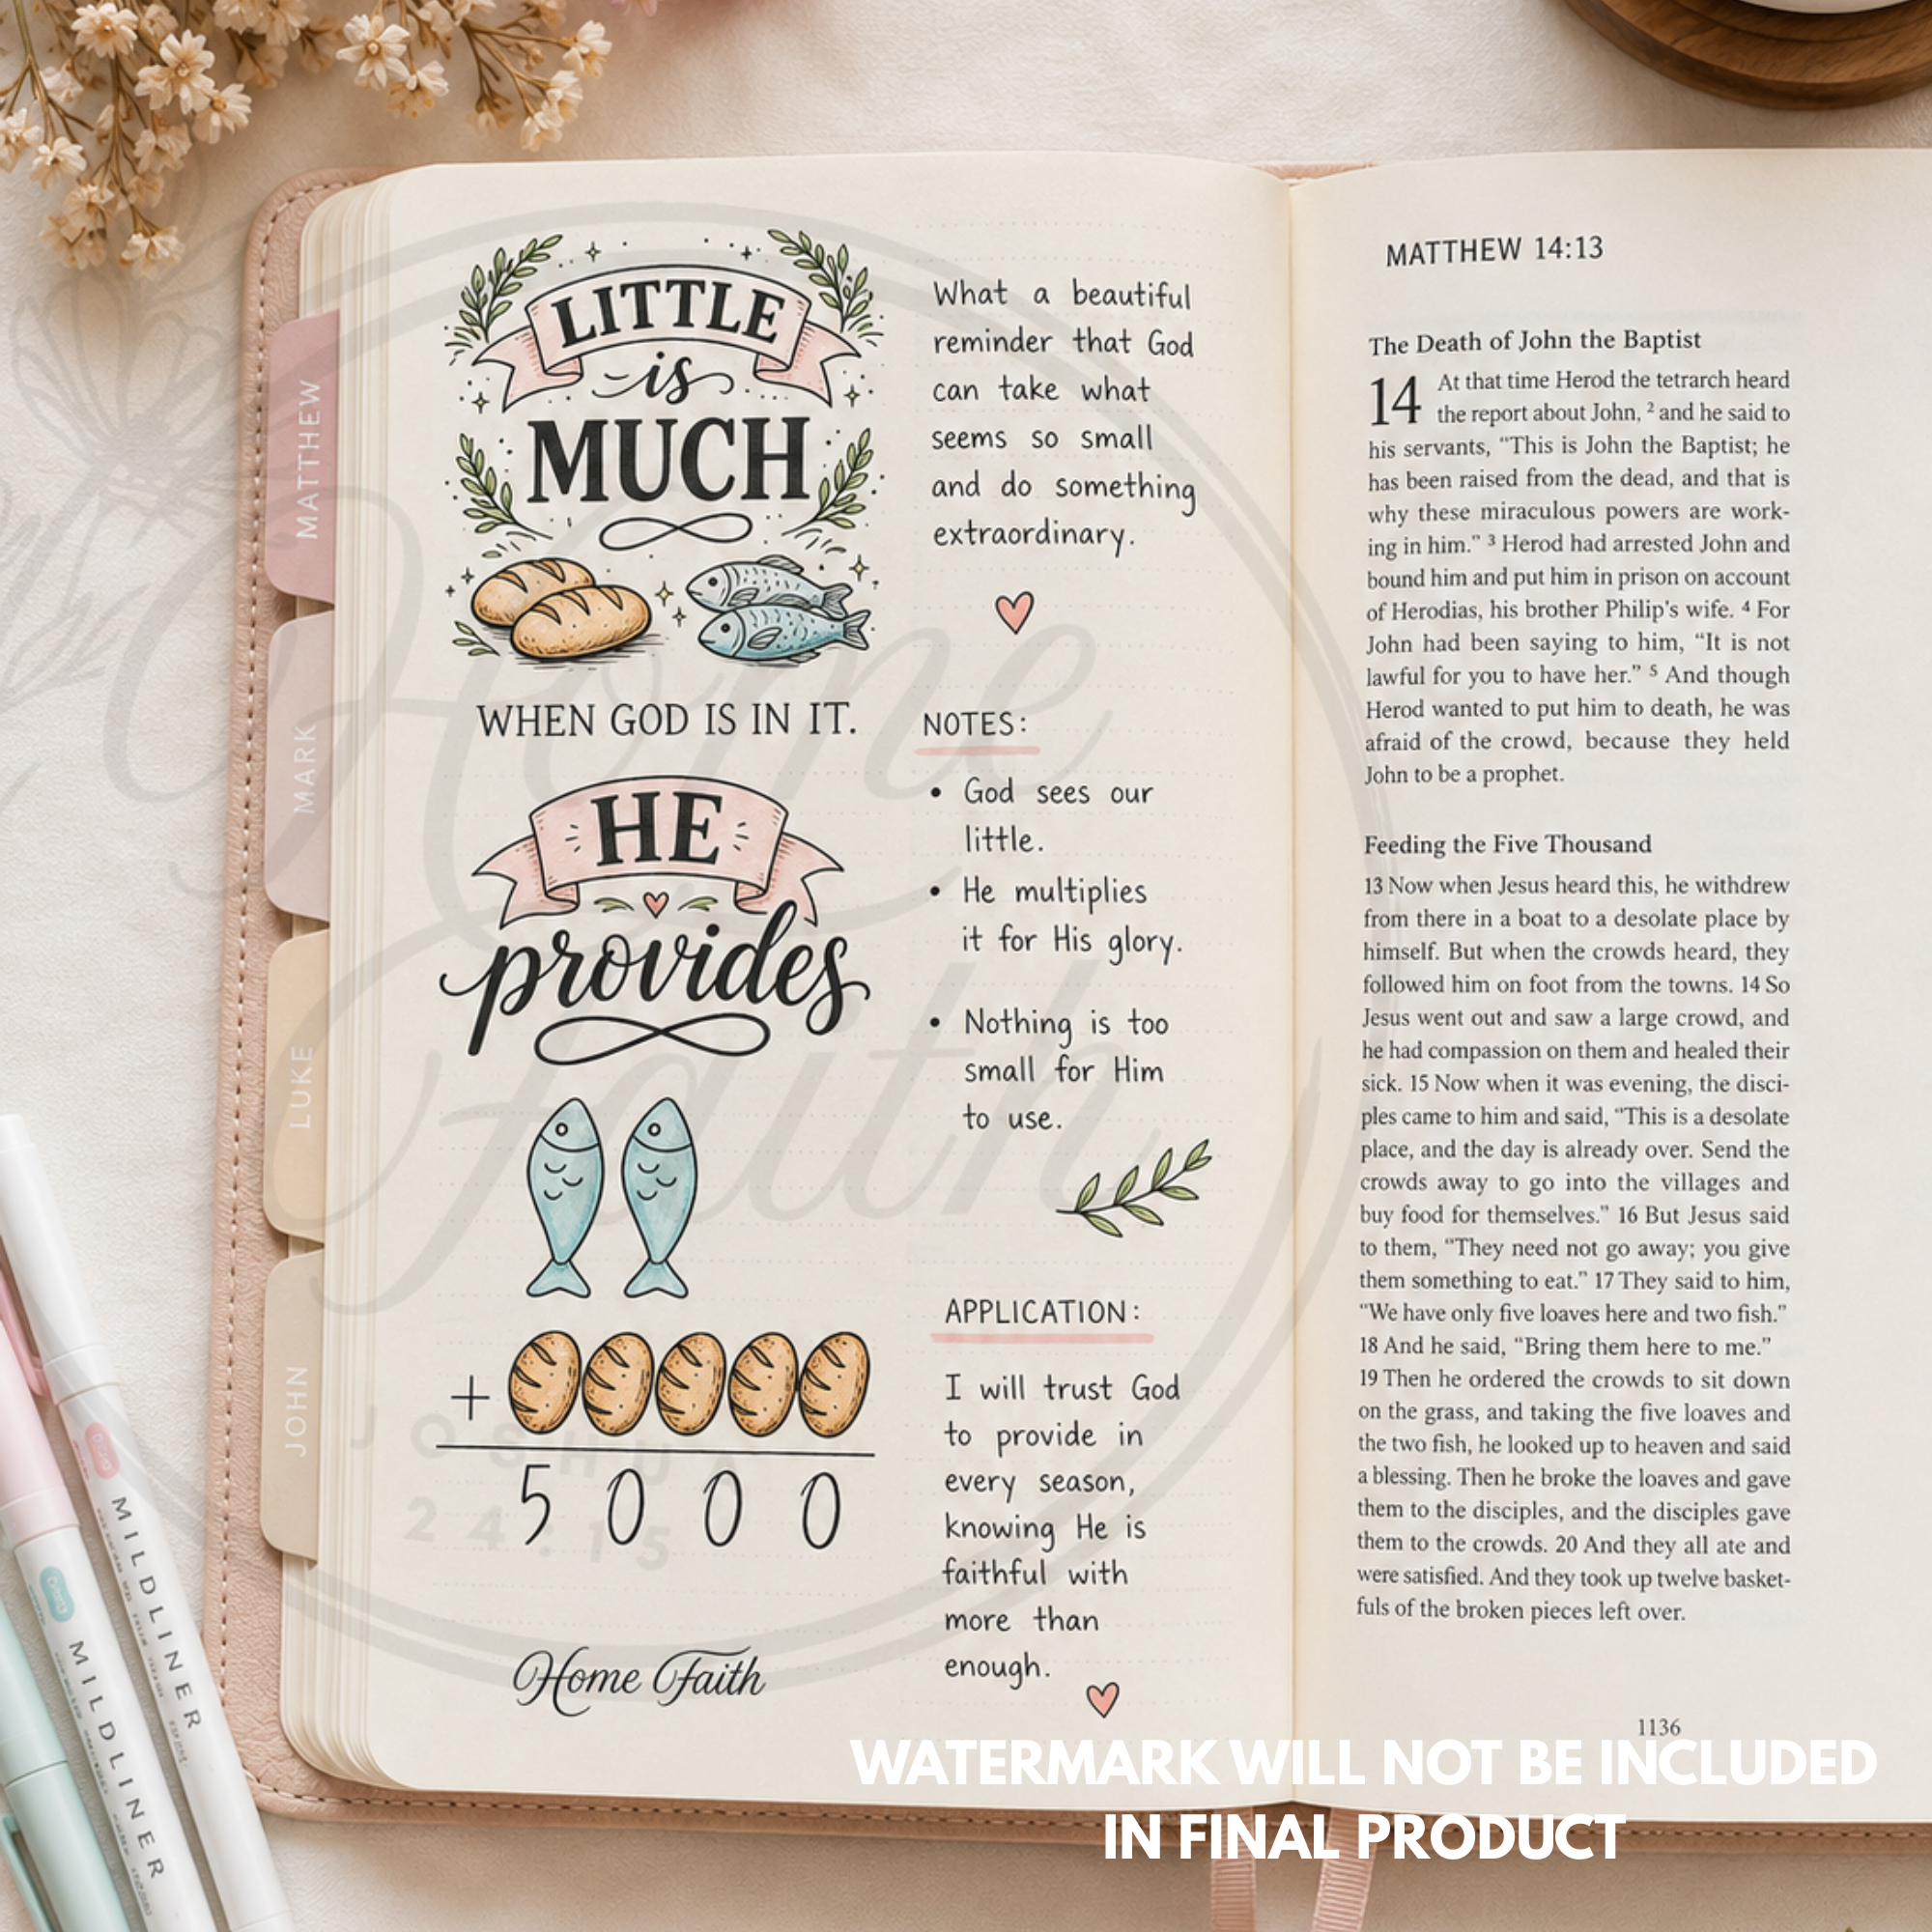 LITTLE
is
MUCH
WHEN GOD IS IN IT.
HE
provides
+
5000
Home Faith
What a beautiful
reminder that God
can take what
seems so small
and do something
extraordinary.
NOTES:
• God sees our
little.
• He multiplies
it for His glory.
• Nothing is too
small for Him
to use.
APPLICATION:
I will trust God
to provide in
every season,
knowing He is
faithful with
more than
enough.
MATTHEW 14:13
The Death of John the Baptist
14 At that time Herod the tetrarch heard
the report about John, 2 and he said to
his servants, “This is John the Baptist; he
has been raised from the dead, and that is
why these miraculous powers are work-
ing in him.” 3 Herod had arrested John and
bound him and put him in prison on account
of Herodias, his brother Philip's wife. 4 For
John had been saying to him, “It is not
lawful for you to have her.” 5 And though
Herod wanted to put him to death, he was
afraid of the crowd, because they held
John to be a prophet.
Feeding the Five Thousand
13 Now when Jesus heard this, he withdrew
from there in a boat to a desolate place by
himself. But when the crowds heard, they
followed him on foot from the towns. 14 So
Jesus went out and saw a large crowd, and
he had compassion on them and healed their
sick. 15 Now when it was evening, the disci-
ples came to him and said, “This is a desolate
place, and the day is already over. Send the
crowds away to go into the villages and
buy food for themselves.” 16 But Jesus said
to them, “They need not go away; you give
them something to eat.” 17 They said to him,
“We have only five loaves here and two fish.”
18 And he said, “Bring them here to me.”
19 Then he ordered the crowds to sit down
on the grass, and taking the five loaves and
the two fish, he looked up to heaven and said
a blessing. Then he broke the loaves and gave
them to the disciples, and the disciples gave
them to the crowds. 20 And they all ate and
were satisfied. And they took up twelve basket-
fuls of the broken pieces left over.
1136
MATTHEW
MARK
LUKE
JOHN
MILDLINER
MILDLINER
Home
Faith
JOSHUA
24:15
WATERMARK WILL NOT BE INCLUDED
IN FINAL PRODUCT